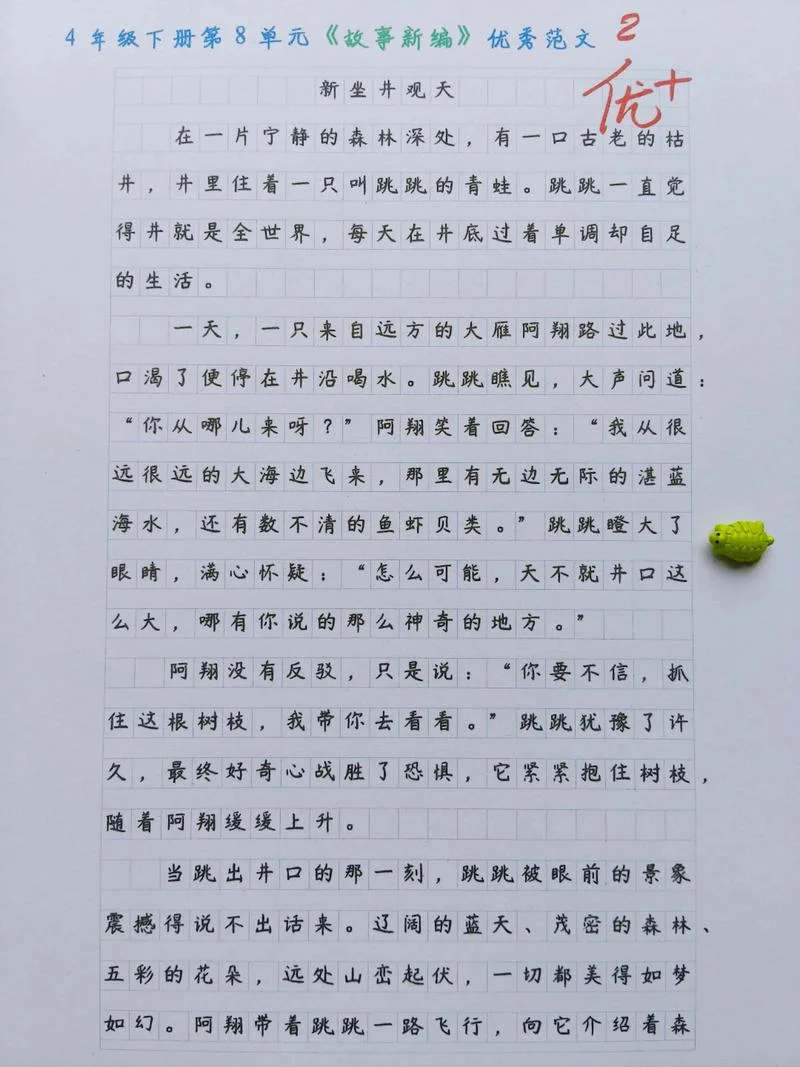 4年级下册第8单元《故事新编》优秀范文 2
优+
新坐井观天
在一片宁静的森林深处，有一口古老的枯
井，井里住着一只叫跳跳的青蛙。跳跳一直觉
得井就是全世界，每天在井底过着单调却自足
的生活。
一天，一只来自远方的大雁阿翔路过此地，
口渴了便停在井沿喝水。跳跳瞧见，大声问道：
“你从哪儿来呀？”阿翔笑着回答：“我从很
远很远的大海边飞来，那里有无边无际的湛蓝
海水，还有数不清的鱼虾贝类。”跳跳瞪大了
眼睛，满心怀疑：“怎么可能，天不就井口这
么大，哪有你说的那么神奇的地方。”
阿翔没有反驳，只是说：“你要不信，抓
住这根树枝，我带你去看看。”跳跳犹豫了许
久，最终好奇心战胜了恐惧，它紧紧抱住树枝，
随着阿翔缓缓上升。
当跳出井口的那一刻，跳跳被眼前的景象
震撼得说不出话来。辽阔的蓝天、茂密的森林、
五彩的花朵，远处山峦起伏，一切都美得如梦
如幻。阿翔带着跳跳一路飞行，向它介绍着森